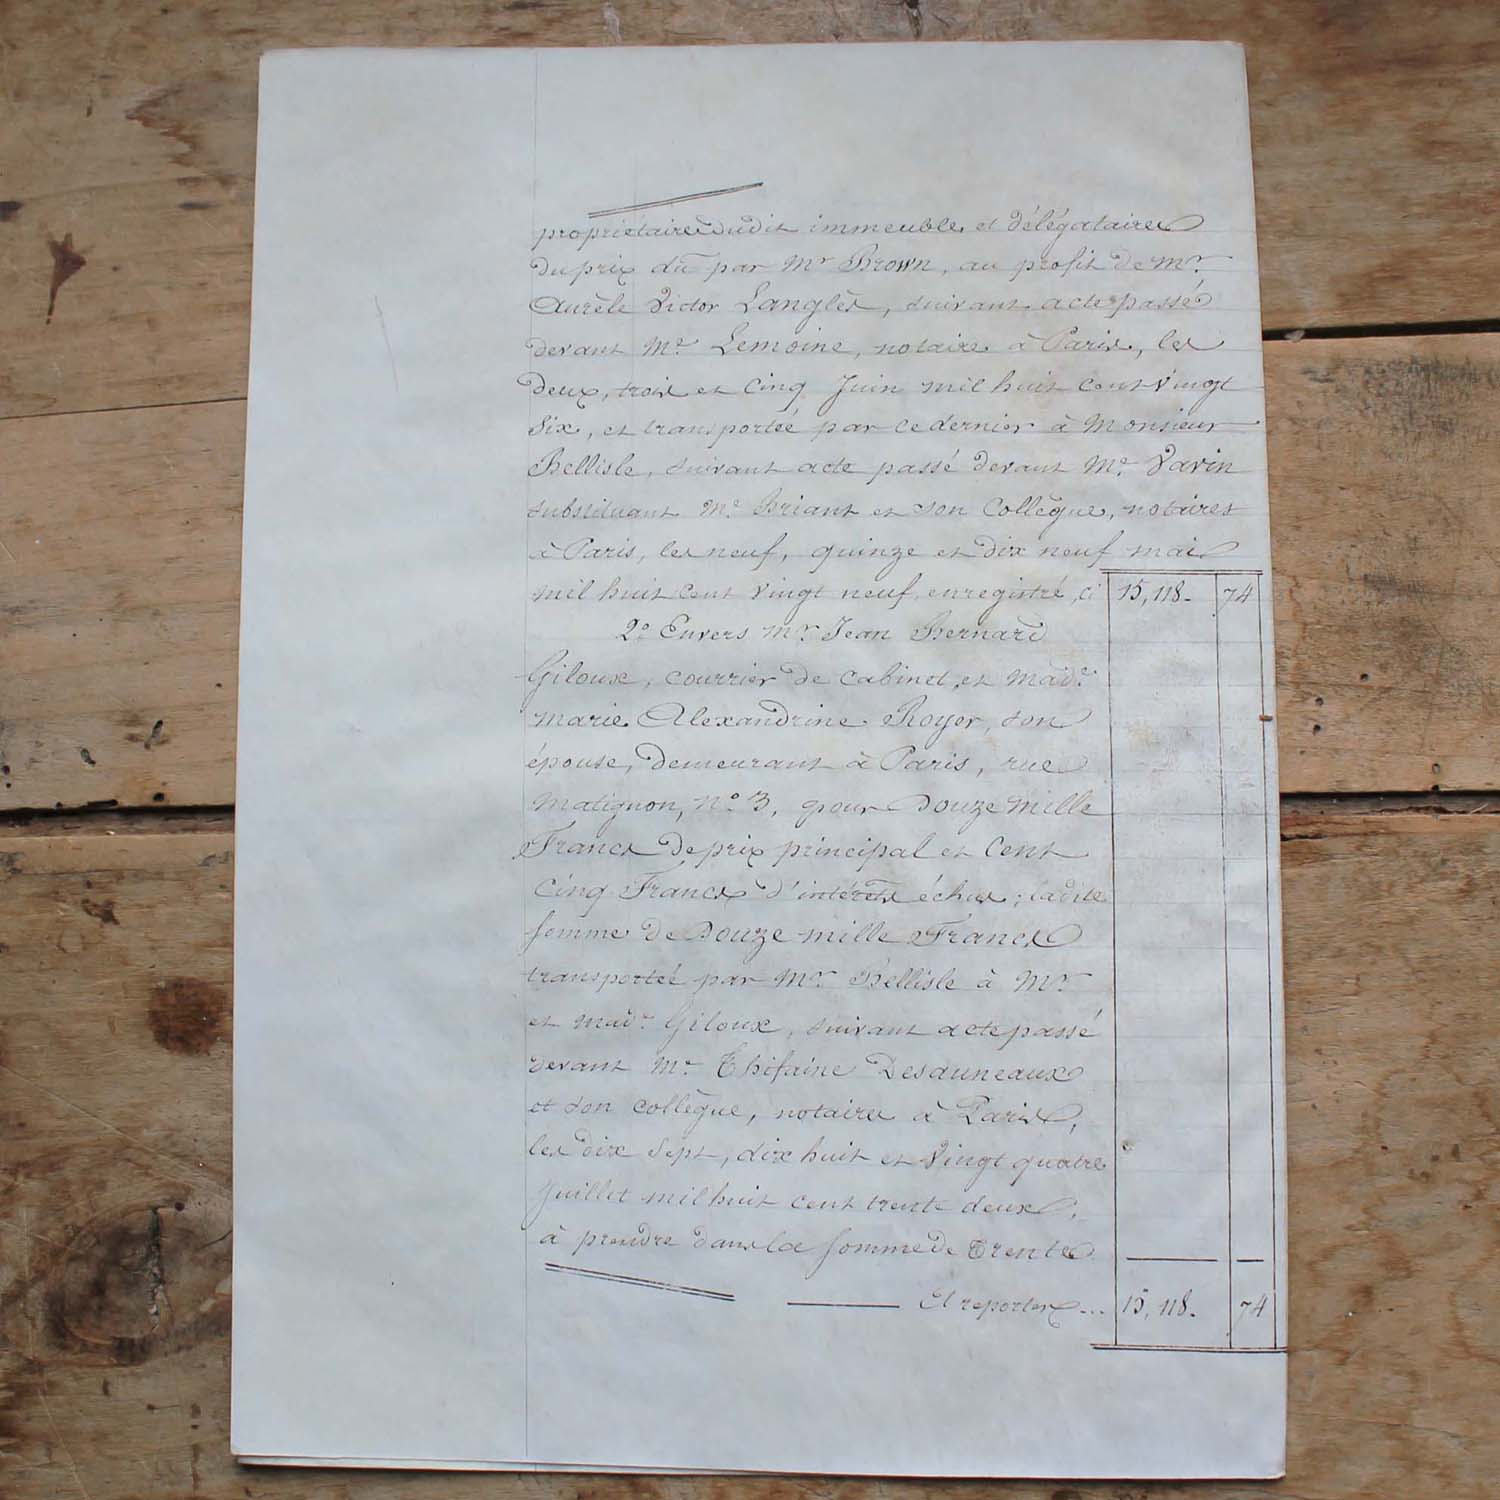 propriétaire dudit immeuble, et délégataire
du prix dû par Mr Brown, au profit de Mr
Aurèle Victor Langlès, suivant acte passé
devant Me Lemoine, notaire à Paris, les
deux, trois et cinq Juin mil huit cent vingt
Six, et transportée par ce dernier à Monsieur
Bellisle, suivant acte passé devant Me Vavin
substituant Me Briant et son Collègue, notaires
à Paris, les neuf, quinze et dix neuf mai
mil huit cent vingt neuf, enregistré, ci 15,118. 74
2o Envers Mr Jean Bernard
Giloux, courrier de cabinet, et Made
Marie Alexandrine Royer, son
épouse, demeurant à Paris, rue
Matignon, No 3, pour Douze mille
Francs de prix principal et Cent
Cinq Francs d'intérêts échus; ladite
Somme de Douze mille Francs
transportée par Mr Bellisle à Mr
et Made Giloux, suivant acte passé
devant Me Thifaine Desauneaux
et son collègue, notaires à Paris,
les dix Sept, dix huit et Vingt quatre
Juillet mil huit cent trente deux,
à prendre dans la Somme de Trente
A reporter... 15,118. 74